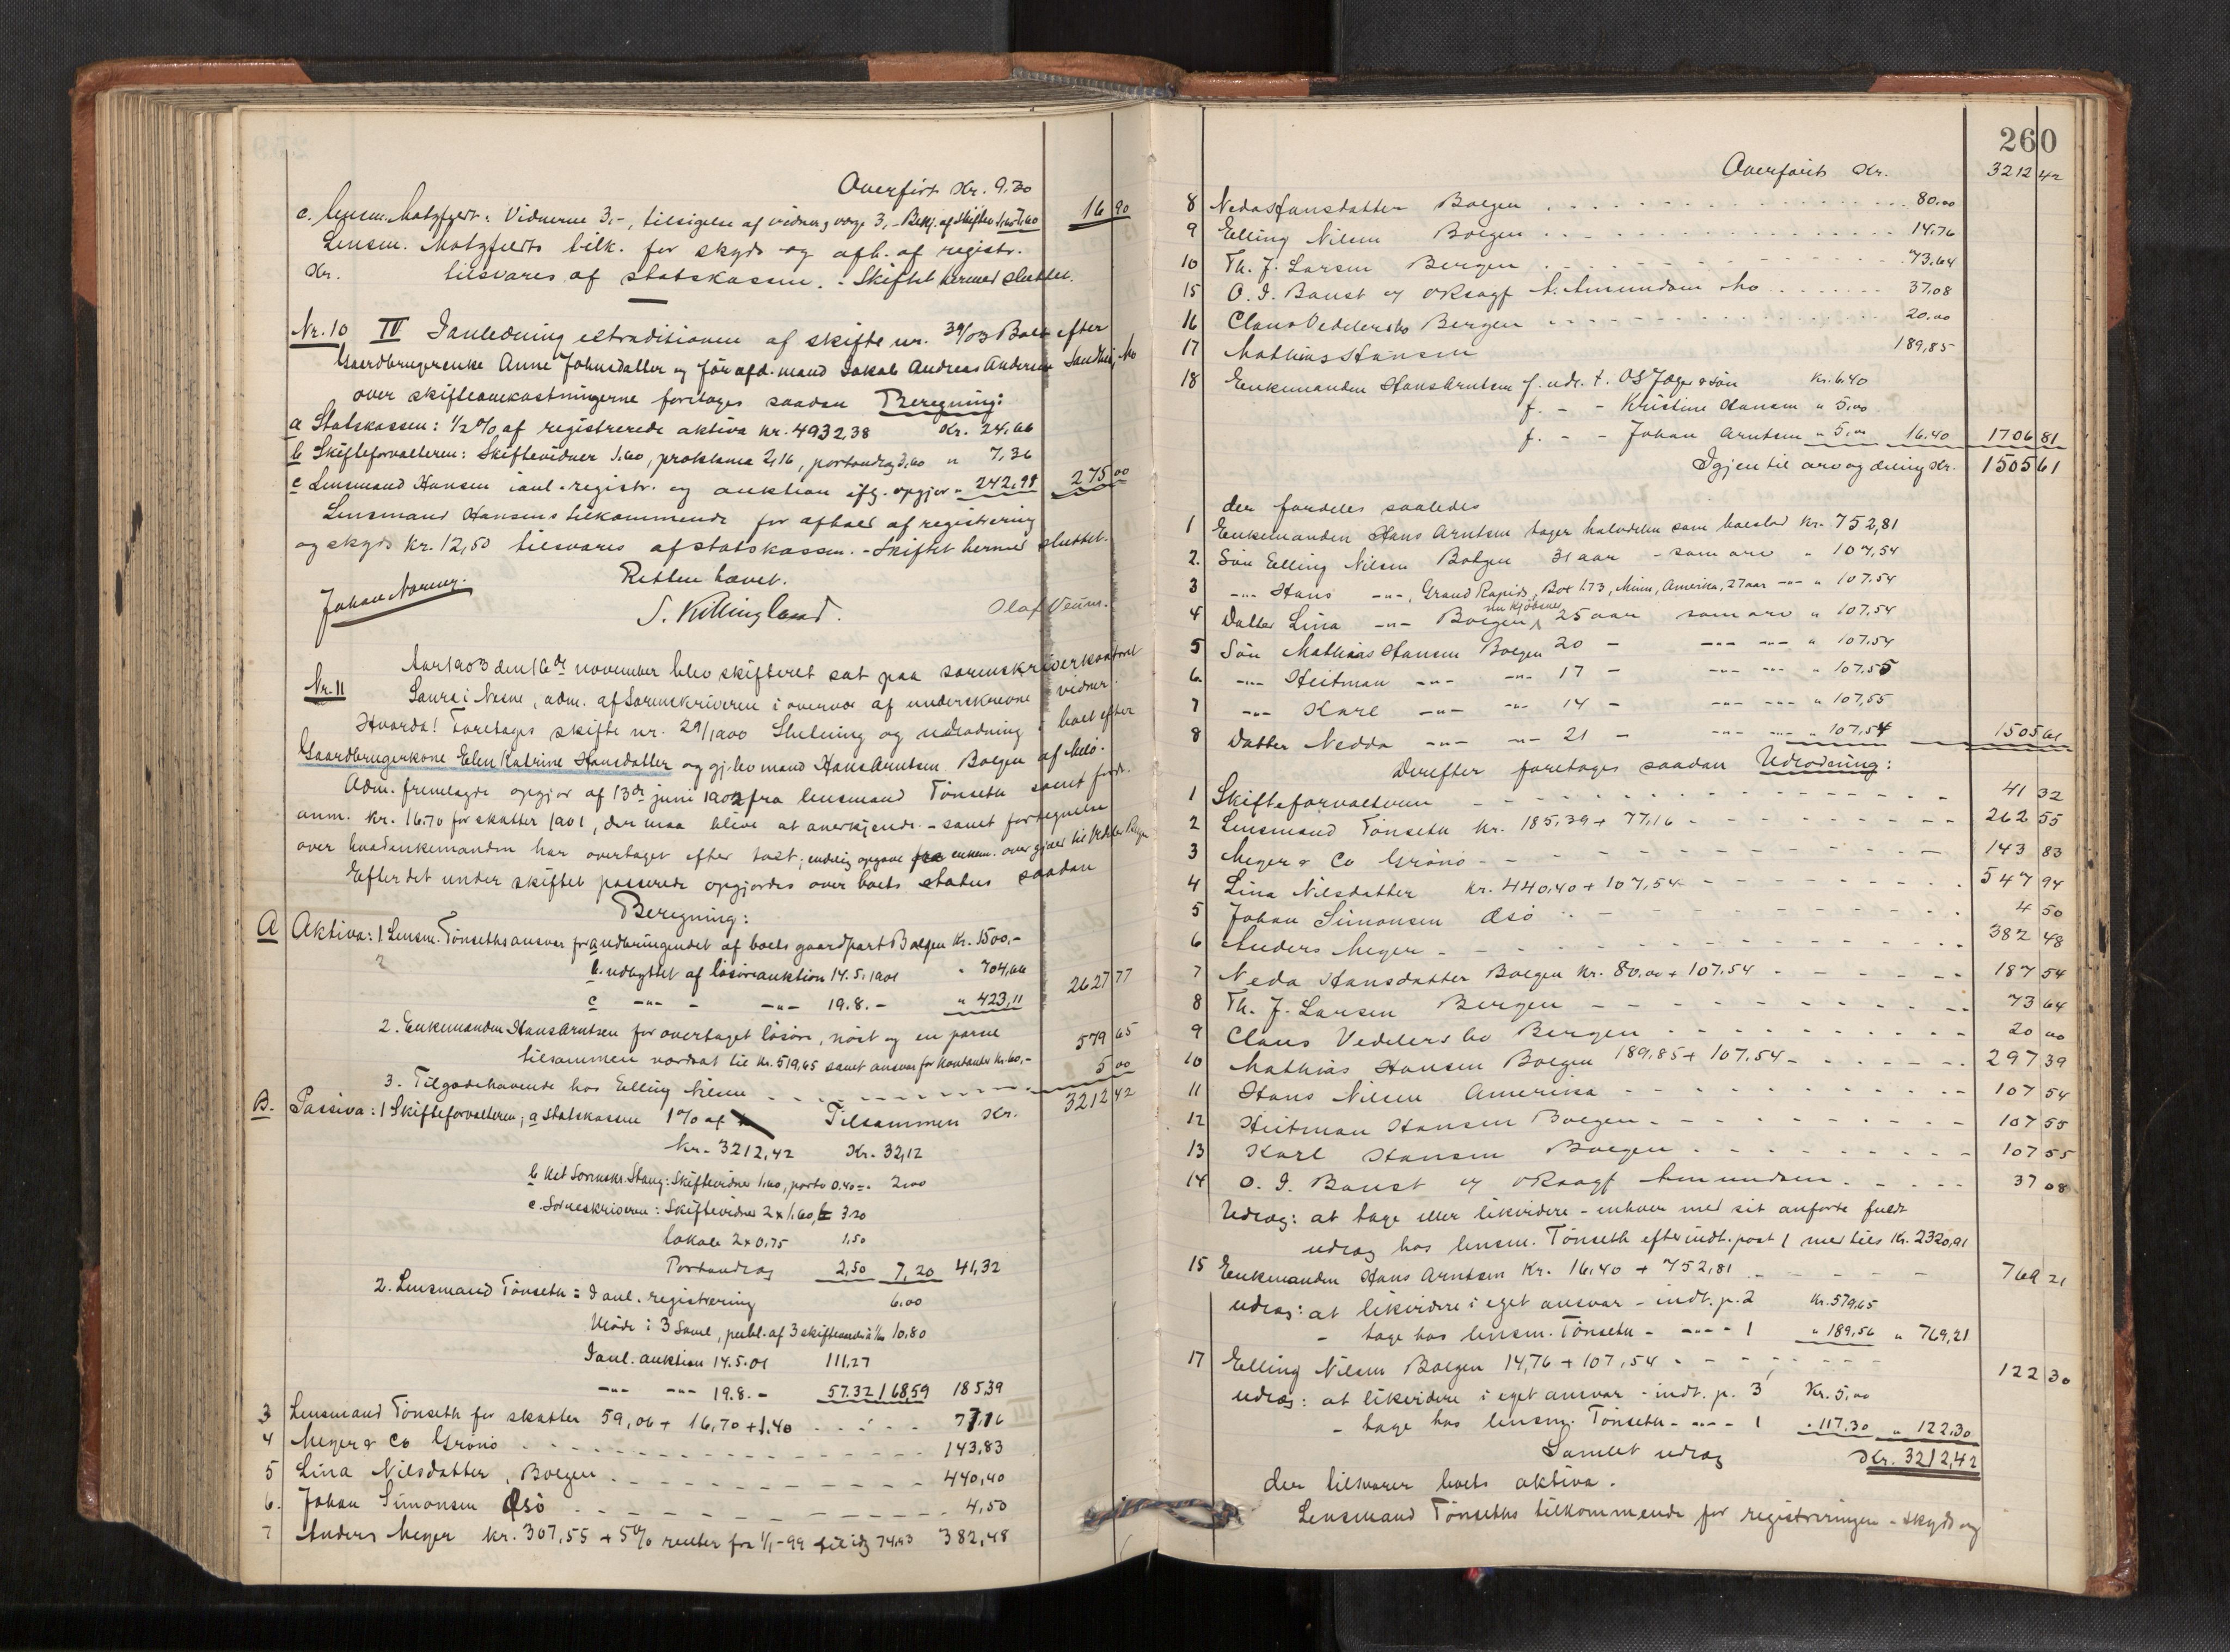 Overført Kr. 9.30
c. lensm. Motzfeldt: Vidnerne 3,-, tilsigelse af vidner og værge 3,- Bekj. af skiftet 1,60 7,60 16 90
Lensm. Motzfeldts tilk. for skyds og afh. af registr.
Kr. tilsvares af statskassen. - Skiftet hermed sluttet.
Nr. 10 IV I anledning extraditionen af skifte nr. 39/03 Boet efter
Gaardbrugerenke Anne Johnsdatter og før afd. mand Jakob Andreas Andersen Sandhei, Mo
over skifteomkostningerne foretages saadan Beregning:
a Statskassen: 1/2 % af registrerede aktiva kr. 4932,38 Kr. 24,66
b Skifteforvalteren: Skiftevidner 1,60, proklama 2,16, portoudlæg 3,60 " 7,36
c Lensmand Hansen i anl. registr. og auktion iflg. opgjør " 242,98 275 00
Lensmand Hansens tilkommende for afhold af registrering
og skyds kr. 12,50 tilsvares af statskassen. - Skiftet hermed sluttet.
Retten hævet.
Johan Norum. S. Killingland. Olaf Veum.
Aar 1903 den 16de november blev skifteret sat paa sorenskriverkontoret
Nr. 11 Saura i Nesne, adm. af Sorenskriveren i overvær af underskrevne vidner.
Hvorda! Foretages skifte nr. 29/1900 Slutning og udlodning i boet efter
Gaardbrugerkone Elen Katrine Hansdatter og gj.lev. mand Hans Arntsen Bolgen af Melø.
Adm. fremlagde opgjør af 13de juni 1902 fra lensmand Tønseth samt fordr.
anm. kr. 16.70 for skatter 1901, der maa blive at anerkjende. - samt fortegnelse
over hvad enkemanden har overtaget efter takst; endelig opgave fra enkem. over gjæld til Vedeler Bergen
Efter det under skiftet passerede opgjordes over boets status saadan
Beregning:
A Aktiva: 1 Lensm. Tønseths ansvar for a udbringendet af boets gaardpart Bolgen Kr. 1500.-
b. udbyttet af løsøreauktion 14.5.1901 " 704,66
c -"- - -"- 19.8. - " 423,11 2627 77
2. Enkemanden Hans Arntsen for overtaget løsøre, nøst og en parcel
tilsammen vordsat til Kr. 519,65 samt ansvar for kontanter Kr. 60,- 579 65
3. Tilgodehavende hos Elling Nilsen 5 00
Tilsammen Kr. 3212 42
B. Passiva: 1 Skifteforvalteren; a Statskassen 1 % af
kr. 3212,42 Kr. 32,12
b Kst. Sorenskr. Stang: Skiftevidner 1.60, porto 0.40 = 2.00
c. Sorenskriveren: Skiftevidner 2 x 1.60, 3.20
lokale 2 x 0,75 1,50
Portoudlæg 2,50 7,20 41,32
2. Lensmand Tønseth: I anl. registrering 6.00
Møde i 3 saml., publ. af 3 skiftesaml. 10,80
I anl. auktion 14.5.01 111.27
-"- -"- 19.8. - 57.32 168,59 185,39
3 Lensmand Tønseth for skatter 59,06 + 16,70 + 1.40 77,16
4 Meyer & Co Grønø 143,83
5 Lina Nilsdatter, Bolgen 440,40
6. Johan Simonsen Æsø 4,50
7 Anders Meyer kr. 307,55 + 5% renter fra 1/1-99 74,93 382,48
260
Overført Kr. 3212 42
8 Neda Hansdatter Bolgen 80.00
9 Elling Nilsen Bolgen 14.76
10 Th. J. Larsen Bergen 73.64
15 O. I. Banst og oRsagf. A. Amundsen Mo 37,08
16 Claus Vedelers bo Bergen 20.00
17 Mathias Hansen 189,85
18 Enkemanden Hans Arntsen f. udl. t. OS Jæger & søn Kr. 6.40
f. - - Kristine Hansen " 5.00
f. - - Johan Arntsen " 5.00 16.40 1706 81
Igjen til arv og deling Kr. 1505 61
der fordeles saaledes
1 Enkemanden Hans Arntsen tager halvdelen som boeslod Kr. 752,81
2. Søn Elling Nilsen Bolgen 31 aar - som arv " 107,54
3 -"- Hans -"-, Grand Rapids, Box 173, Minn, Amerika, 27 aar -"- " 107.54
4 Datter Lina -"- Bolgen, 25 aar som arv " 107,54
5 Søn Mathias Hansen Bolgen 20 - -"- -"- " 107.54
6. -"- Heitman -"- -"- 17 - -"- -"- " 107.55
7 -"- Karl -"- -"- 14 - -"- -"- " 107,55
8 Datter Nedda -"- -"- 21 - -"- -"- " 107.54 1505 61
Derefter foretages saadan Udlodning:
1 Skifteforvalteren 41 32
2 Lensmand Tønseth kr. 185,39 + 77,16 262 55
3 Meyer & Co Grønø 143 83
4 Lina Nilsdatter kr. 440,40 + 107,54 547 94
5 Johan Simonsen Æsø 4 50
6 Anders Meyer 382 48
7 Neda Hansdatter Bolgen kr. 80.00 + 107.54 187 54
8 Th. J. Larsen Bergen 73 64
9 Claus Vedelers bo Bergen 20 00
10 Mathias Hansen Bolgen 189,85 + 107.54 297 39
11 Hans Nilsen Amerika 107 54
12 Heitman Hansen Bolgen 107 55
13 Karl Hansen Bolgen 107 55
14 O. I. Banst og oRsagf Amundsen 37 08
Udlæg: at tage eller likvidere - enhver med sit anførte fuldt
udlæg hos lensm. Tønseth efter indt. post 1 med tils. Kr. 2320,91
15 Enkemanden Hans Arntsen Kr. 16.40 + 752,81 769 21
udlæg: at likvidere i eget ansvar - indt. p. 2 Kr. 579,65
- tage hos lensm. Tønseth - -"- - 1 " 189,56 " 769,21
17 Elling Nilsen Bolgen 14,76 + 107,54 122 30
udlæg: at likvidere i eget ansvar - indt. p. 3 Kr. 5,00
- tage hos lensm. Tønseth - -"- - 1 " 117.30 " 122.30
Samlet udlæg Kr. 3212,42
der tilsvarer boets aktiva.
Lensmand Tønseths tilkommende for registreringen - skyds og